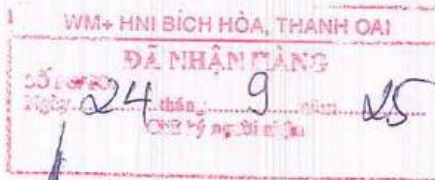 WM+ HNI BÍCH HÒA, THANH OAI
ĐÃ NHẬN HÀNG
Ngày 24 tháng 9 năm 25
Chữ ký người nhận